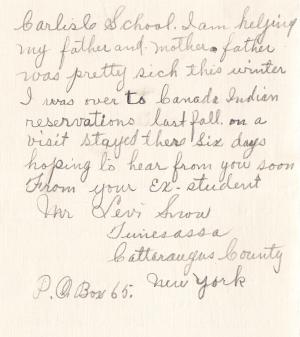 Carlisle School. I am helping
my father and mother. father
was pretty sick this winter
I was over to Canada Indian
reservations last fall on a
visit stayed there six days
hoping to hear from you soon
From your Ex-student
Mr Levi Snow
Tunesassa
Cattaraugus County
P.O Box 65. New York